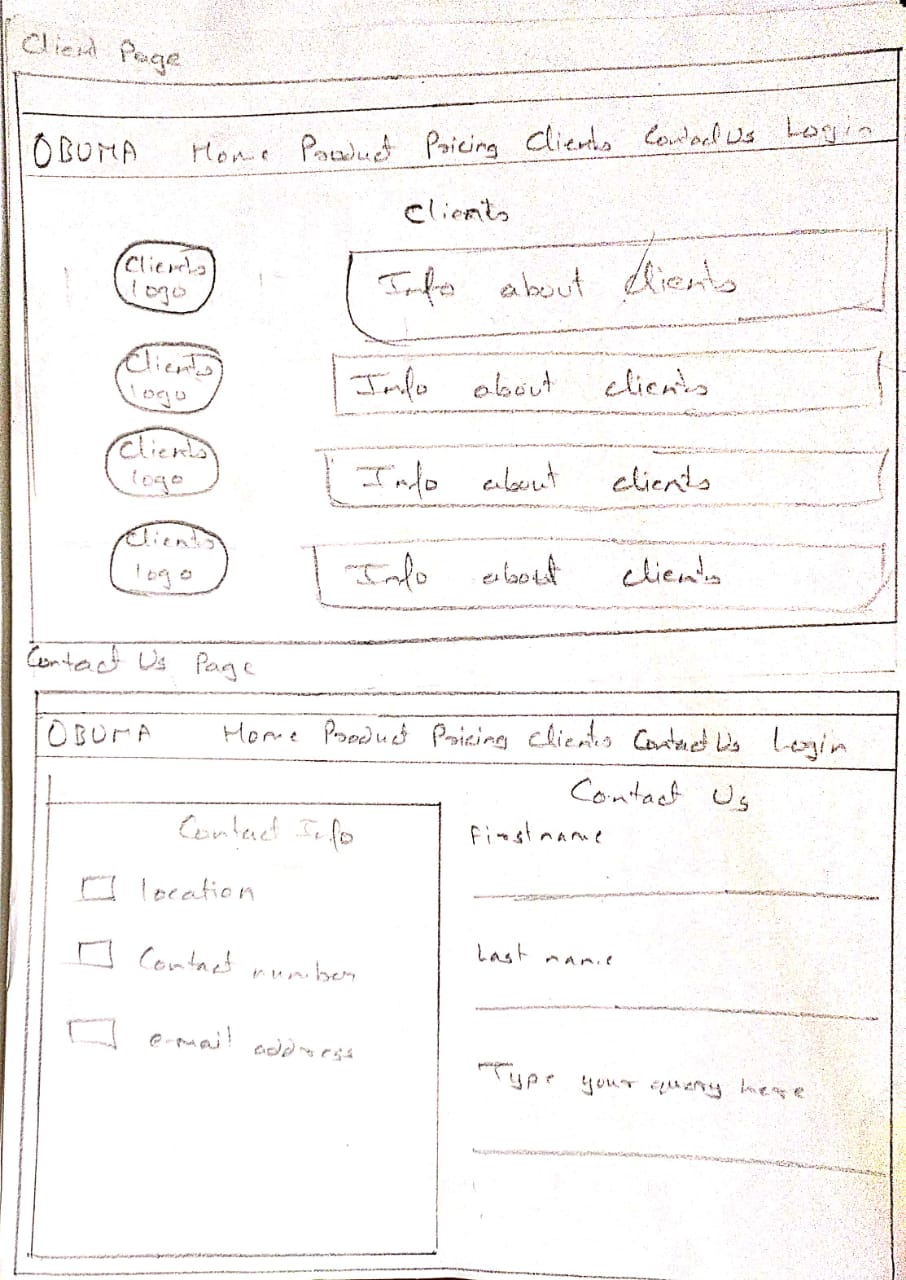 Client Page
OBUMA Home Product Pricing Clients Contact Us Login
Clients
Clients
logo
Info about clients
Clients
logo
Info about clients
Clients
logo
Info about clients
Clients
logo
Info about clients
Contact Us Page
OBUMA Home Product Pricing Clients Contact Us Login
Contact Info
location
Contact number
e-mail address
Contact Us
First name
Last name
Type your query here